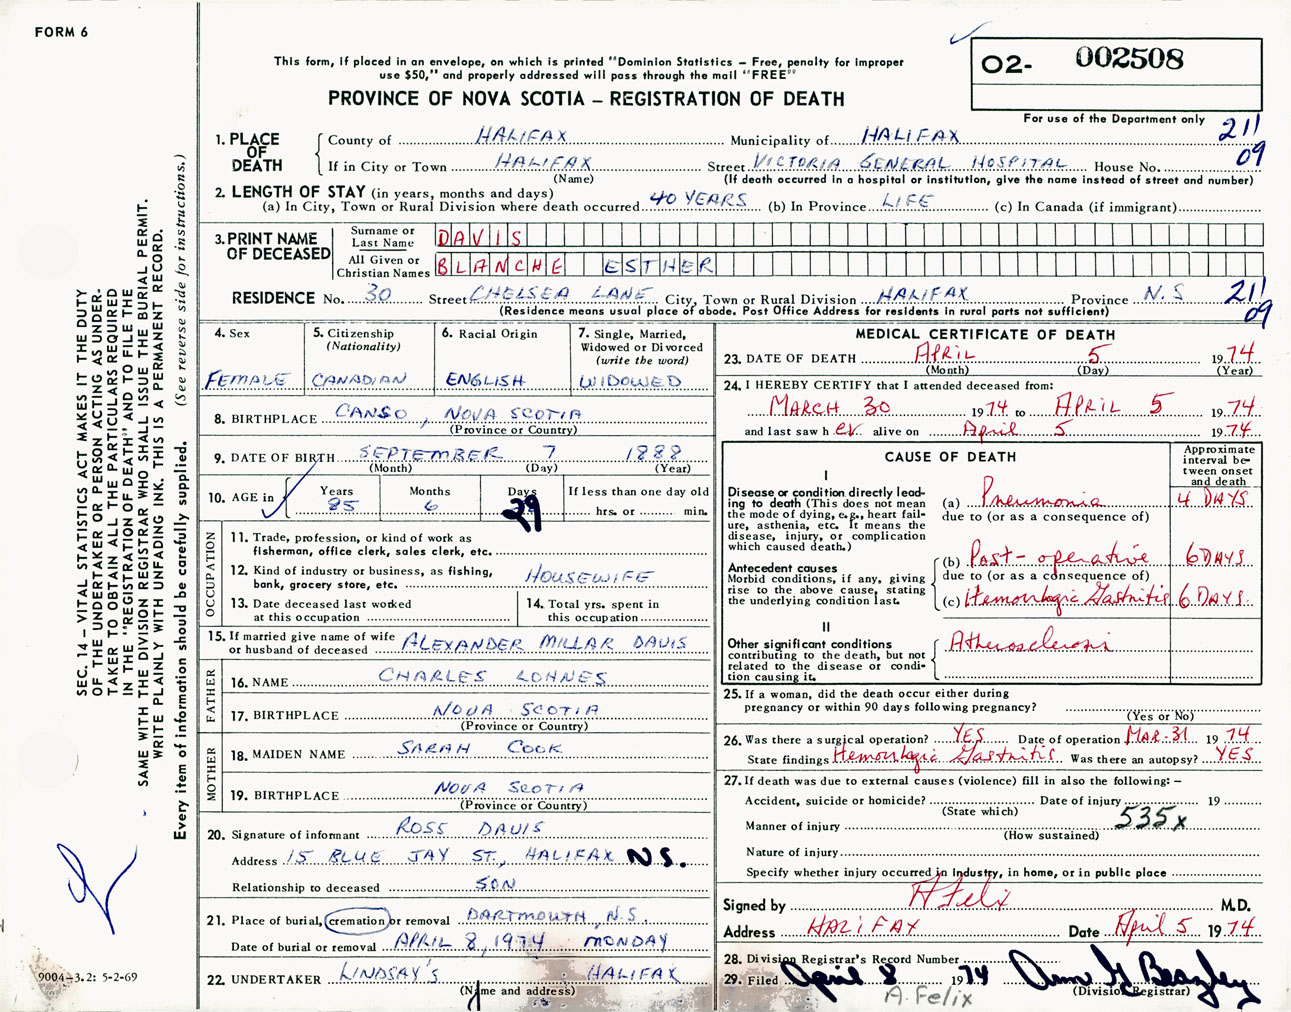 FORM 6
This form, if placed in an envelope, on which is printed "Dominion Statistics – Free, penalty for improper
use $50," and properly addressed will pass through the mail "FREE"
PROVINCE OF NOVA SCOTIA – REGISTRATION OF DEATH
O2- 002508
For use of the Department only
211
09
SEC. 14 – VITAL STATISTICS ACT MAKES IT THE DUTY
OF THE UNDERTAKER OR PERSON ACTING AS UNDER-
TAKER TO OBTAIN ALL THE PARTICULARS REQUIRED
IN THE "REGISTRATION OF DEATH" AND TO FILE THE
SAME WITH THE DIVISION REGISTRAR WHO SHALL ISSUE THE BURIAL PERMIT.
WRITE PLAINLY WITH UNFADING INK. THIS IS A PERMANENT RECORD.
Every item of information should be carefully supplied. (See reverse side for instructions.)
1. PLACE OF DEATH
County of HALIFAX Municipality of HALIFAX
If in City or Town HALIFAX Street VICTORIA GENERAL HOSPITAL House No.
(Name) (If death occurred in a hospital or institution, give the name instead of street and number)
2. LENGTH OF STAY (in years, months and days)
(a) In City, Town or Rural Division where death occurred 40 YEARS (b) In Province LIFE (c) In Canada (if immigrant)
3. PRINT NAME OF DECEASED
Surname or Last Name DAVIS
All Given or Christian Names BLANCHE ESTHER
RESIDENCE No. 30 Street CHELSEA LANE City, Town or Rural Division HALIFAX Province N.S
211
09
(Residence means usual place of abode. Post Office Address for residents in rural parts not sufficient)
4. Sex
FEMALE
5. Citizenship
(Nationality)
CANADIAN
6. Racial Origin
ENGLISH
7. Single, Married,
Widowed or Divorced
(write the word)
WIDOWED
8. BIRTHPLACE CANSO, NOVA SCOTIA
(Province or Country)
9. DATE OF BIRTH SEPTEMBER 7 1888
(Month) (Day) (Year)
10. AGE in Years 85 Months 6 Days 29
If less than one day old
hrs. or min.
OCCUPATION
11. Trade, profession, or kind of work as
fisherman, office clerk, sales clerk, etc.
12. Kind of industry or business, as fishing,
bank, grocery store, etc. HOUSEWIFE
13. Date deceased last worked
at this occupation
14. Total yrs. spent in
this occupation
15. If married give name of wife
or husband of deceased ALEXANDER MILLAR DAVIS
FATHER
16. NAME CHARLES LOHNES
17. BIRTHPLACE NOVA SCOTIA
(Province or Country)
MOTHER
18. MAIDEN NAME SARAH COOK
19. BIRTHPLACE NOVA SCOTIA
(Province or Country)
20. Signature of informant ROSS DAVIS
Address 15 BLUE JAY ST., HALIFAX N.S.
Relationship to deceased SON
21. Place of burial, cremation or removal DARTMOUTH, N.S.
Date of burial or removal APRIL 8, 1974 MONDAY
22. UNDERTAKER LINDSAY'S HALIFAX
(Name and address)
9004–3.2: 5-2-69
MEDICAL CERTIFICATE OF DEATH
23. DATE OF DEATH APRIL 5 1974
(Month) (Day) (Year)
24. I HEREBY CERTIFY that I attended deceased from:
MARCH 30 1974 to APRIL 5 1974
and last saw her alive on April 5 1974
CAUSE OF DEATH
Approximate
interval be-
tween onset
and death
I
Disease or condition directly lead-
ing to death (This does not mean
the mode of dying, e.g., heart fail-
ure, asthenia, etc. It means the
disease, injury, or complication
which caused death.)
(a) Pneumonia 4 DAYS
due to (or as a consequence of)
Antecedent causes
Morbid conditions, if any, giving
rise to the above cause, stating
the underlying condition last.
(b) Post-operative 6 DAYS
due to (or as a consequence of)
(c) Hemorrhagic Gastritis 6 DAYS.
II
Other significant conditions
contributing to the death, but not
related to the disease or condi-
tion causing it.
Atherosclerosis
25. If a woman, did the death occur either during
pregnancy or within 90 days following pregnancy?
(Yes or No)
26. Was there a surgical operation? YES Date of operation MAR-31 1974
State findings Hemorrhagic Gastritis Was there an autopsy? YES
27. If death was due to external causes (violence) fill in also the following: –
Accident, suicide or homicide? Date of injury 19
(State which)
Manner of injury 535x
(How sustained)
Nature of injury
Specify whether injury occurred in industry, in home, or in public place
Signed by A Felix M.D.
Address HALIFAX Date April 5 1974
28. Division Registrar's Record Number
29. Filed April 8 1974 Ann G Beazley
(Division Registrar)
A. Felix